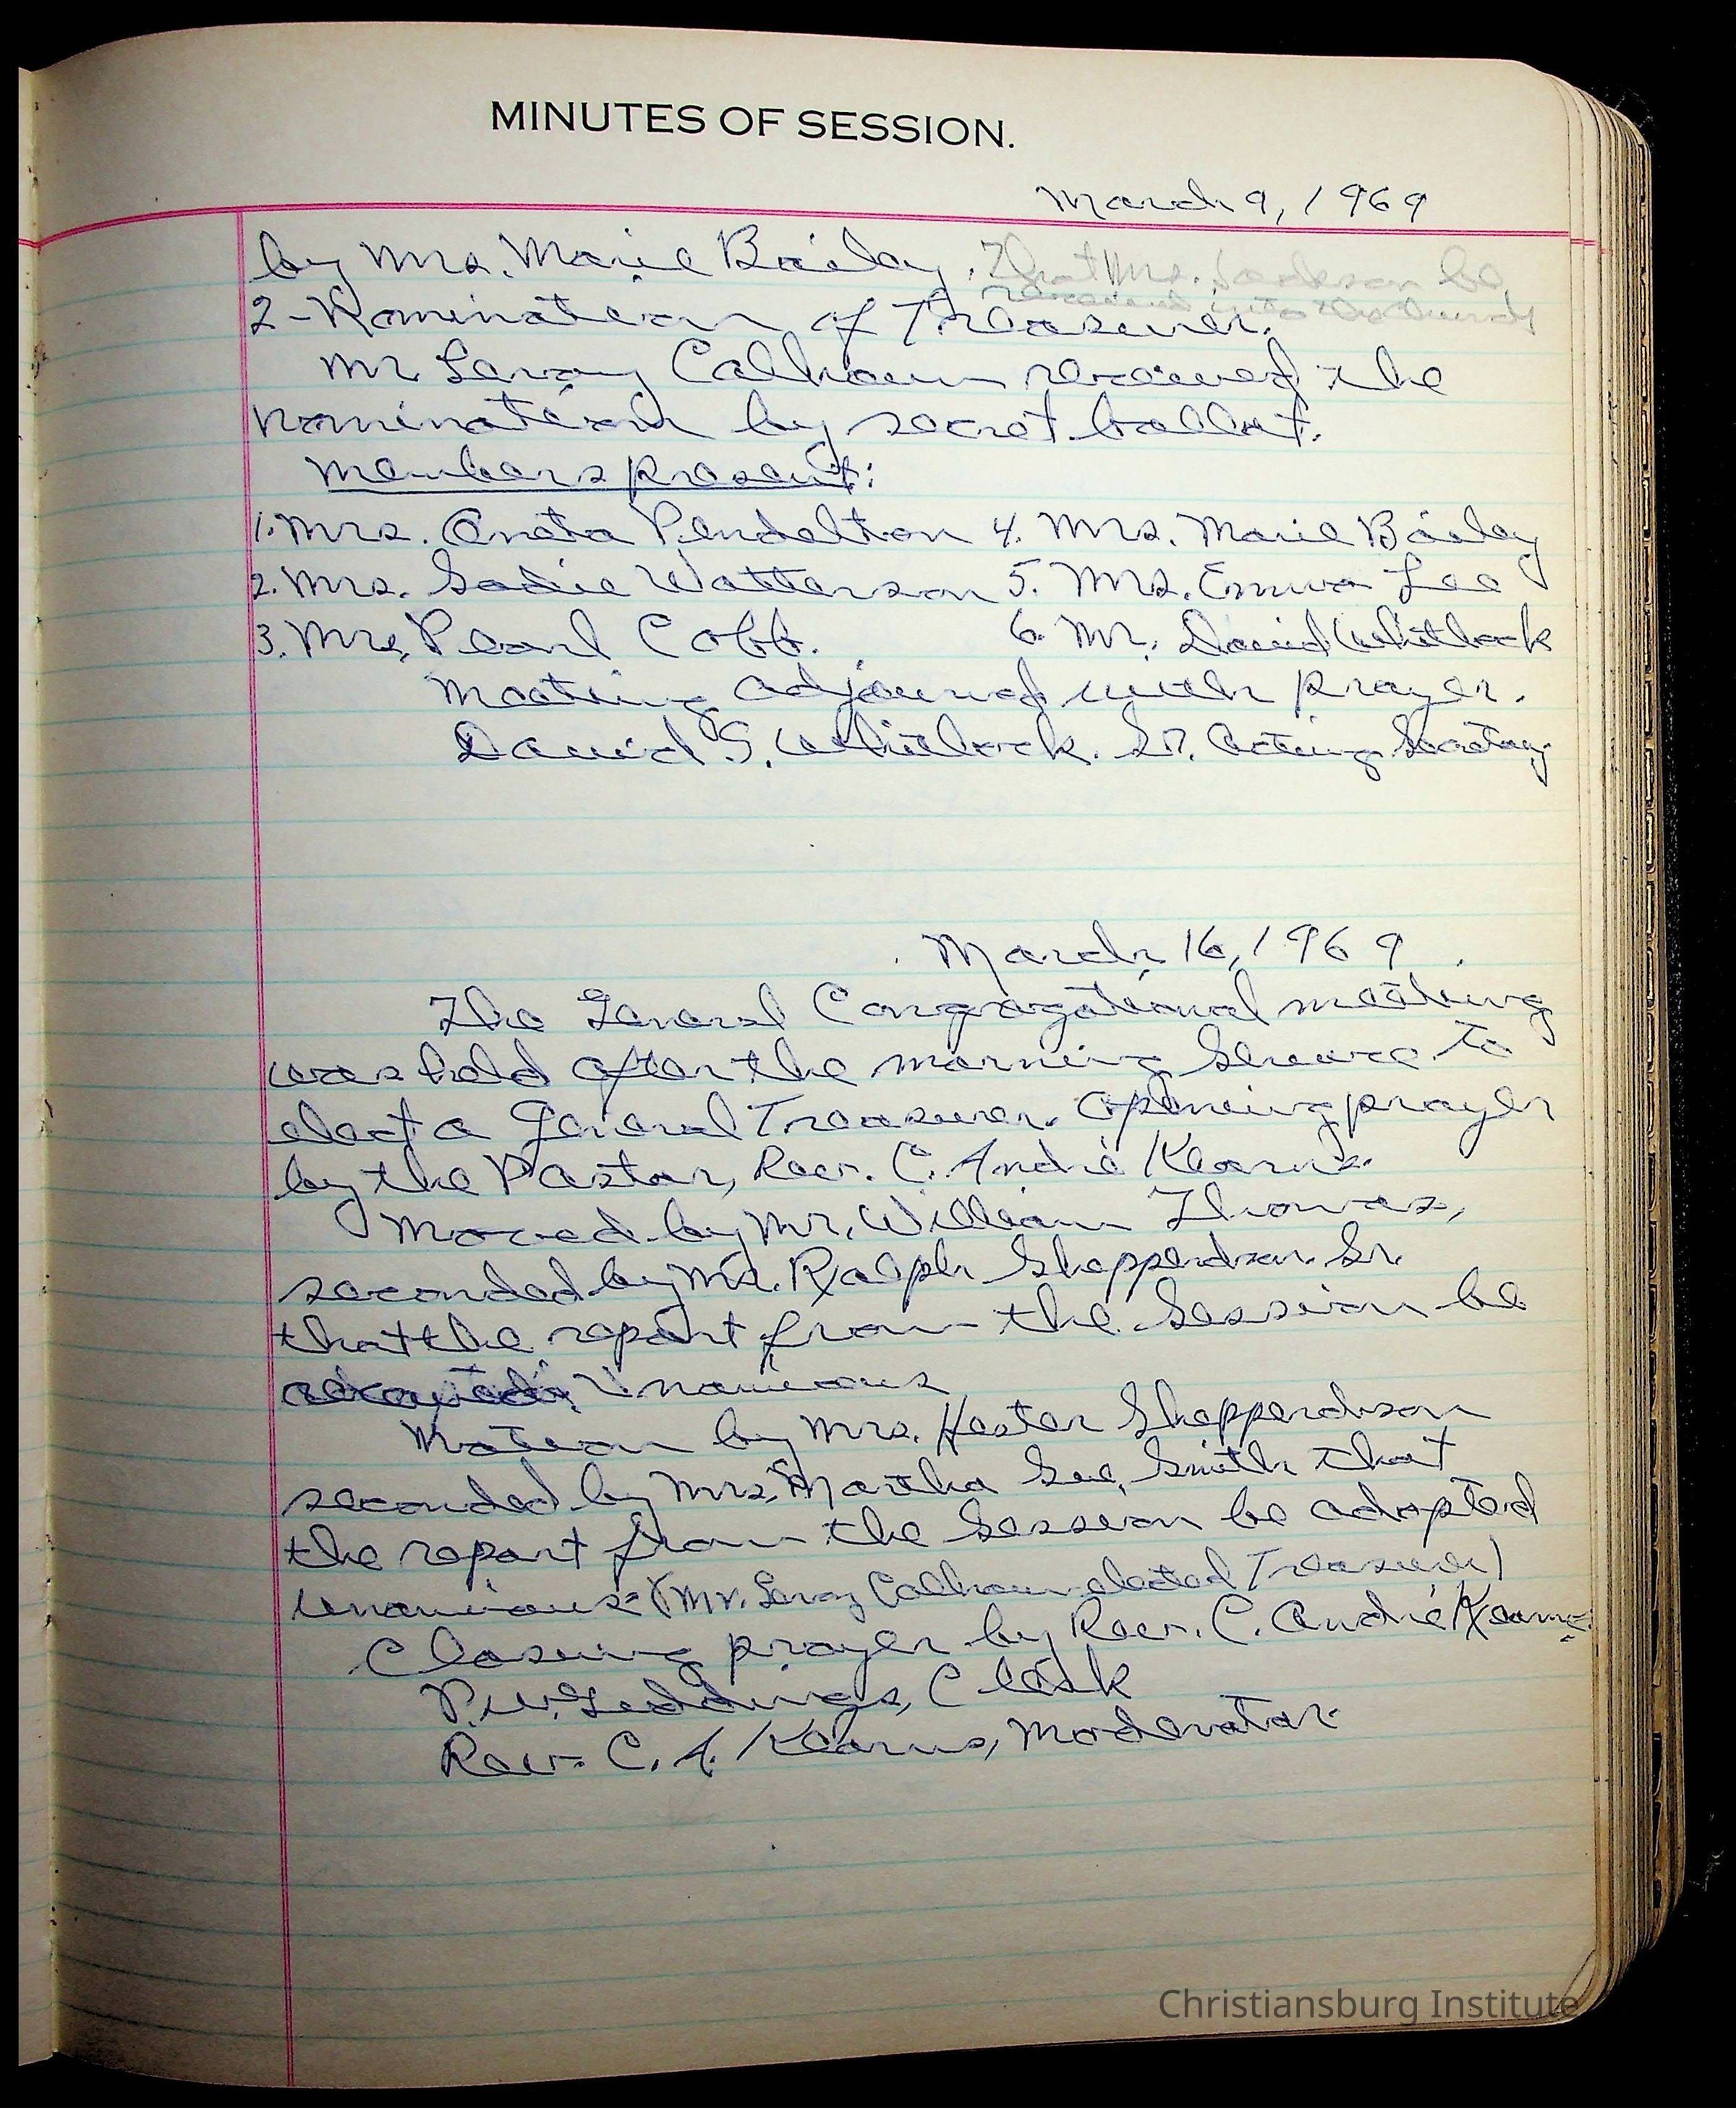 MINUTES OF SESSION.
March 9, 1969
by Mrs. Marie Bailey. That Mrs. Jackson be
received into the church
2-Nomination of Treasurer.
Mr Leroy Calhoun received the
nomination by secret ballot.
Members Present:
1. Mrs. Oneta Pendelton 4. Mrs. Marie Bailey
2. Mrs. Sadie Watterson 5. Mrs. Emma Lee
3. Mrs, Pearl Cobb. 6. Mr. David Whitlock
Meeting adjourned with prayer.
David S. Whitlock. Sr. Acting Secretary
March 16, 1969
The General Congregational meeting
was held after the morning Service to
elect a General Treasurer. Opening prayer
by the Pastor, Rev. C. Andre Kearns.
Moved by Mr. William Thomas,
seconded by Mr. Ralph Shepperdson. Sr.
that the report from the Session be
Unanimous
Motion by Mrs. Hester Shepperdson
seconded by Mrs. Martha Sue Smith that
the report from the Session be adopted
Unanimous (Mr. Leroy Calhoun elected Treasurer)
Closing prayer by Rev. C. Andre Kearns
P.W. Geddings, Clerk
Rev. C. A. Kearns, Moderator
Christiansburg Institute